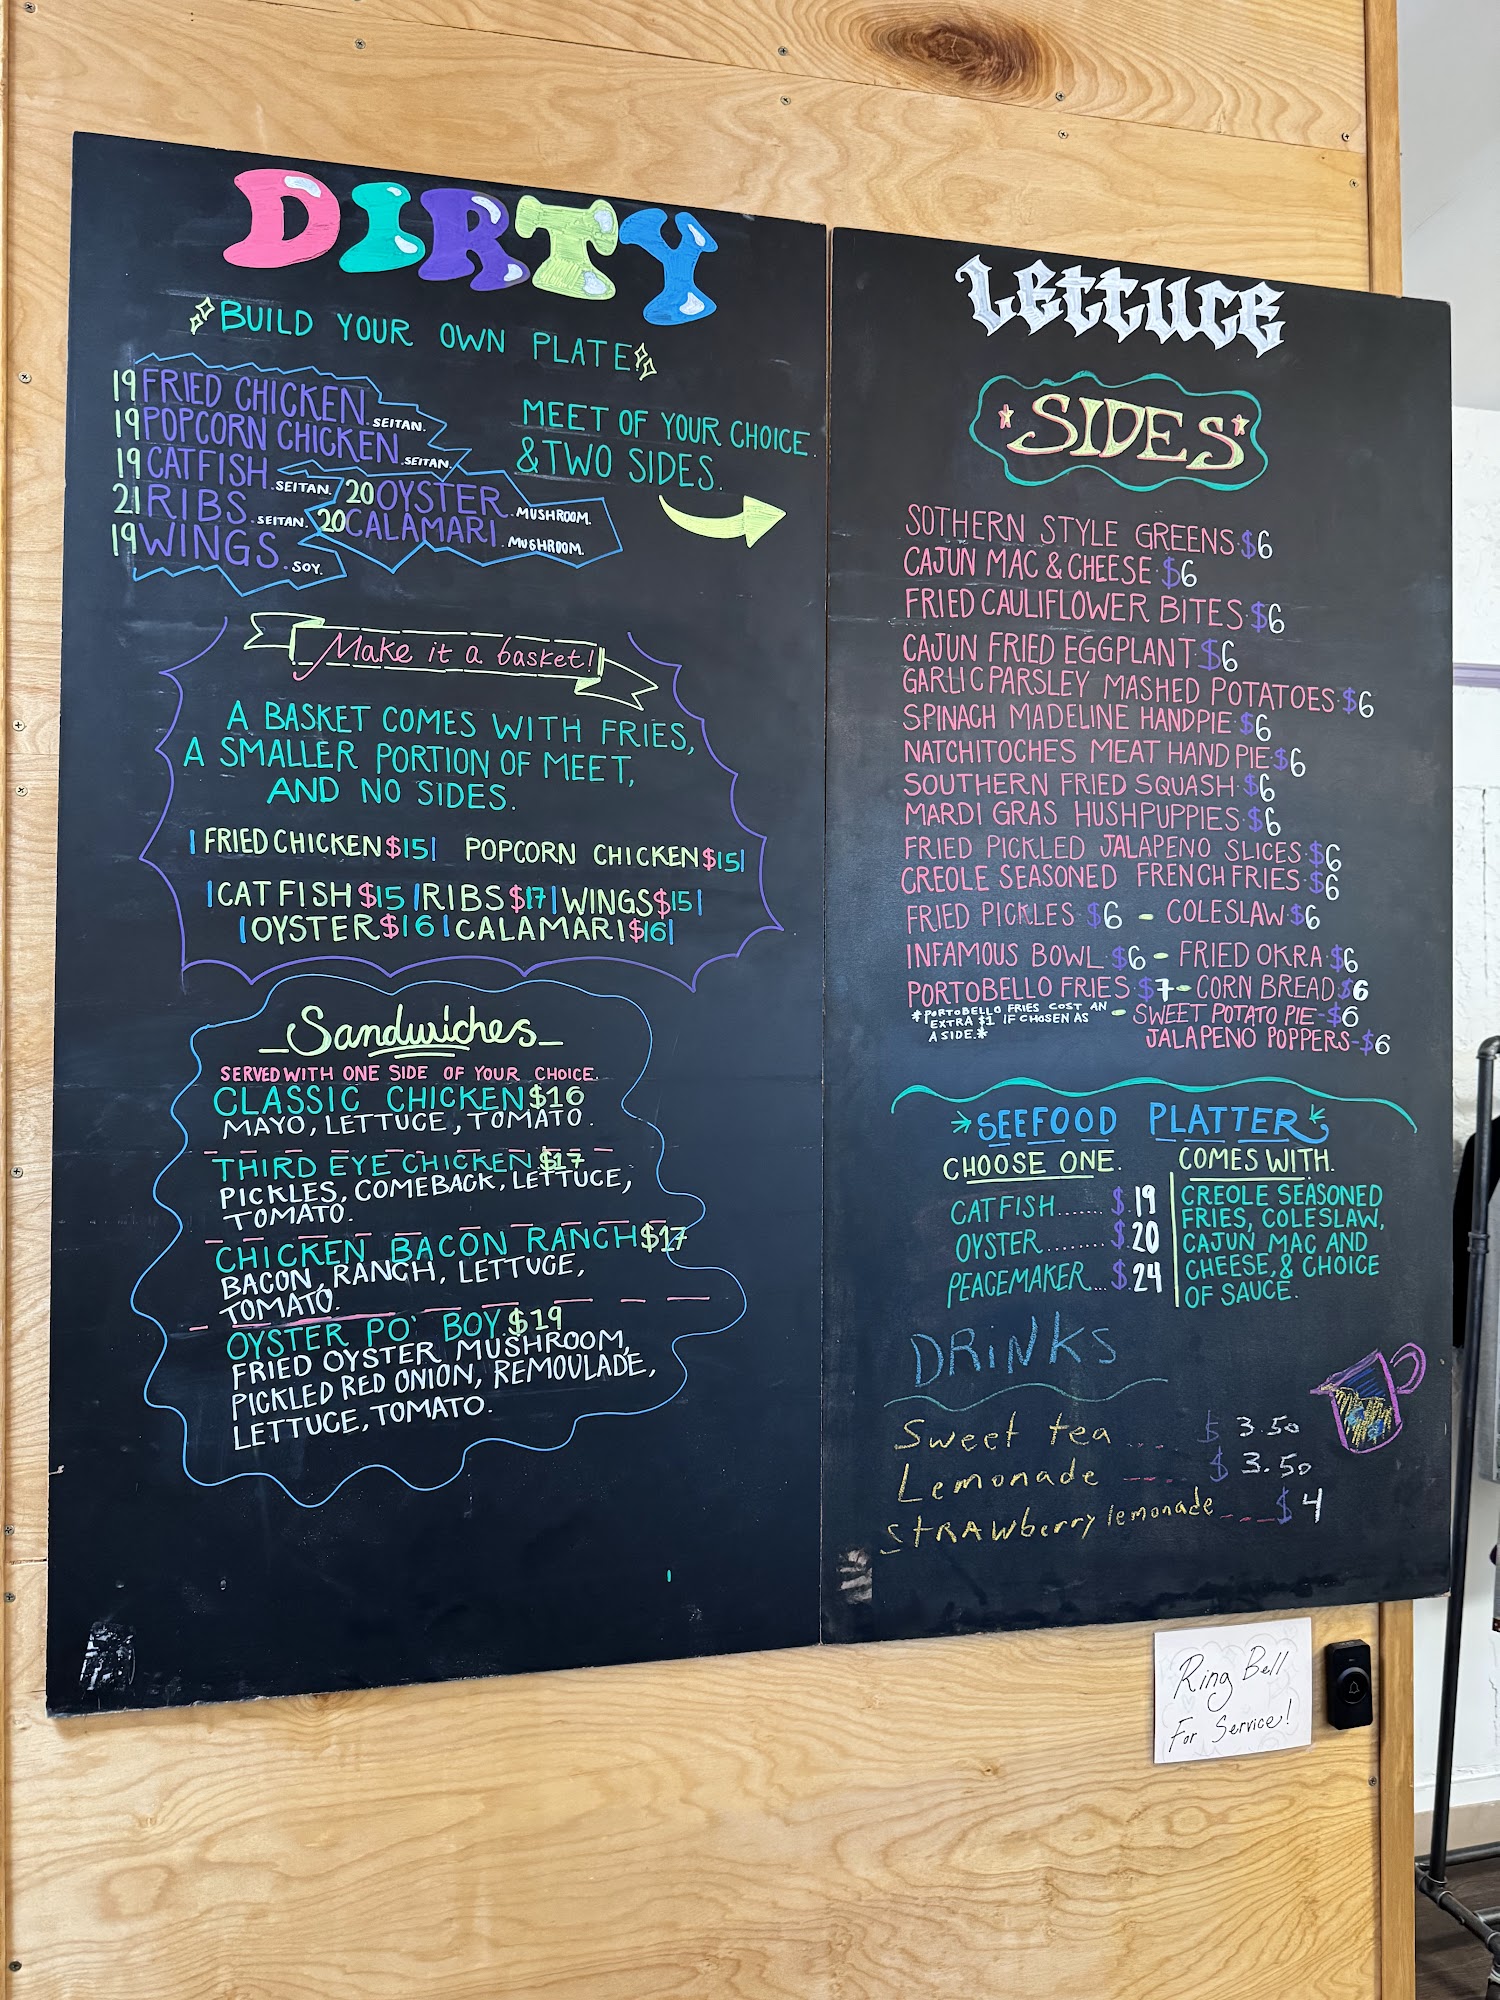 DIRTY
BUILD YOUR OWN PLATE!
19 FRIED CHICKEN. SEITAN.
19 POPCORN CHICKEN. SEITAN.
19 CATFISH. SEITAN.
21 RIBS. SEITAN.
19 WINGS. SOY.
20 OYSTER. MUSHROOM.
20 CALAMARI. MUSHROOM.
MEET OF YOUR CHOICE
& TWO SIDES.
Make it a basket!
A BASKET COMES WITH FRIES,
A SMALLER PORTION OF MEET,
AND NO SIDES.
|FRIED CHICKEN $15| POPCORN CHICKEN $15|
|CATFISH $15 |RIBS $17| WINGS $15|
|OYSTER $16|CALAMARI $16|
Sandwiches
SERVED WITH ONE SIDE OF YOUR CHOICE.
CLASSIC CHICKEN $16
MAYO, LETTUCE, TOMATO.
THIRD EYE CHICKEN $17
PICKLES, COMEBACK, LETTUCE,
TOMATO.
CHICKEN BACON RANCH $17
BACON, RANCH, LETTUCE,
TOMATO.
OYSTER PO' BOY $19
FRIED OYSTER MUSHROOM,
PICKLED RED ONION, REMOULADE,
LETTUCE, TOMATO.
LETTUCE
SIDES
SOTHERN STYLE GREENS·$6
CAJUN MAC & CHEESE·$6
FRIED CAULIFLOWER BITES·$6
CAJUN FRIED EGGPLANT·$6
GARLIC PARSLEY MASHED POTATOES·$6
SPINACH MADELINE HANDPIE·$6
NATCHITOCHES MEAT HAND PIE·$6
SOUTHERN FRIED SQUASH·$6
MARDI GRAS HUSHPUPPIES·$6
FRIED PICKLED JALAPENO SLICES·$6
CREOLE SEASONED FRENCH FRIES·$6
FRIED PICKLES·$6 - COLESLAW·$6
INFAMOUS BOWL·$6 - FRIED OKRA·$6
PORTOBELLO FRIES·$7 - CORN BREAD·$6
*PORTOBELLO FRIES COST AN
EXTRA $1 IF CHOSEN AS
A SIDE.*
- SWEET POTATO PIE-$6
JALAPENO POPPERS-$6
SEEFOOD PLATTER
CHOOSE ONE.
CATFISH....... $ 19
OYSTER......... $ 20
PEACEMAKER... $ 24
COMES WITH.
CREOLE SEASONED
FRIES, COLESLAW,
CAJUN MAC AND
CHEESE, & CHOICE
OF SAUCE.
DRiNKS
Sweet tea ... $ 3.50
Lemonade ---- $ 3.50
StRAWberry lemonade ---$ 4
Ring Bell
For Service!